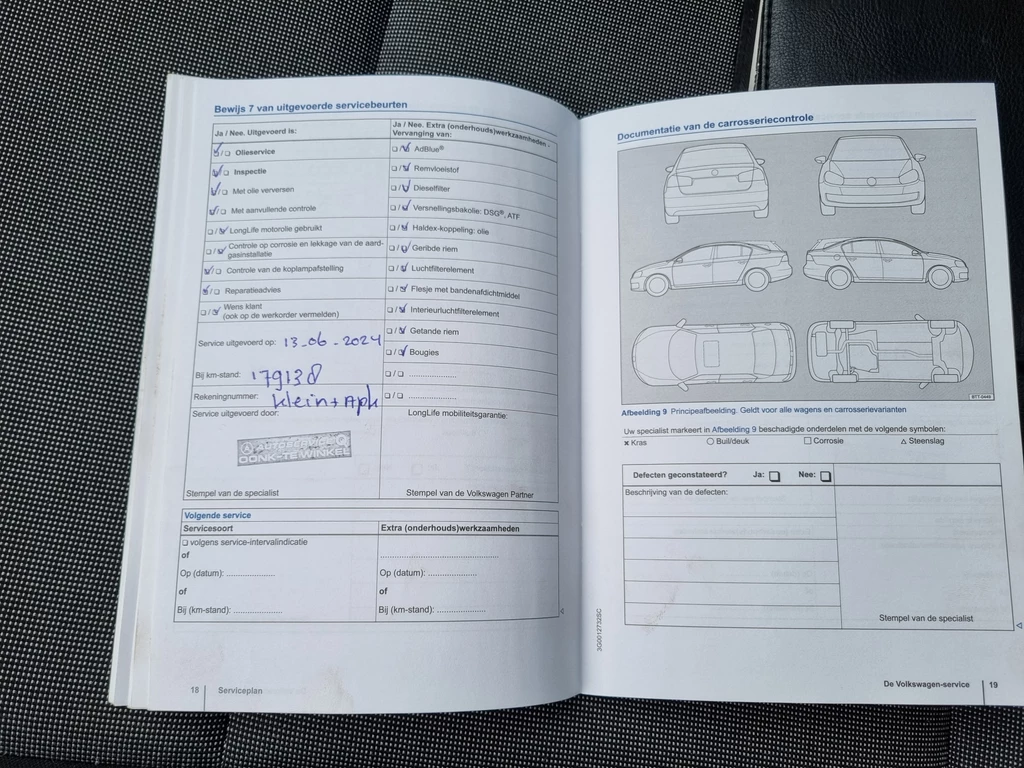 Bewijs 7 van uitgevoerde servicebeurten
Ja / Nee. Uitgevoerd is:
Olieservice
Inspectie
Met olie verversen
Met aanvullende controle
LongLife motorolie gebruikt
Controle op corrosie en lekkage van de aard-
gasinstallatie
Controle van de koplampafstelling
Reparatieadvies
Wens klant
(ook op de werkorder vermelden)
Service uitgevoerd op: 13-06-2024
Bij km-stand: 179138
Rekeningnummer: Klein + Apk
Service uitgevoerd door:
AUTOSERVICE
DONK-TE WINKEL
Stempel van de specialist
Ja / Nee. Extra (onderhouds)werkzaamheden -
Vervanging van:
AdBlue®
Remvloeistof
Dieselfilter
Versnellingsbakolie: DSG®, ATF
Haldex-koppeling: olie
Geribde riem
Luchtfilterelement
Flesje met bandenafdichtmiddel
Interieurluchtfilterelement
Getande riem
Bougies
LongLife mobiliteitsgarantie:
Stempel van de Volkswagen Partner
Volgende service
Servicesoort
volgens service-intervalindicatie
of
Op (datum): ....................
of
Bij (km-stand): ..................
Extra (onderhouds)werkzaamheden
Op (datum): ....................
of
Bij (km-stand): ..................
18 Serviceplan
Documentatie van de carrosseriecontrole
BTT-0449
Afbeelding 9 Principeafbeelding. Geldt voor alle wagens en carrosserievarianten
Uw specialist markeert in Afbeelding 9 beschadigde onderdelen met de volgende symbolen:
× Kras ○ Buil/deuk □ Corrosie △ Steenslag
Defecten geconstateerd? Ja: □ Nee: □
Beschrijving van de defecten:
Stempel van de specialist
3G0012732SC
De Volkswagen-service 19